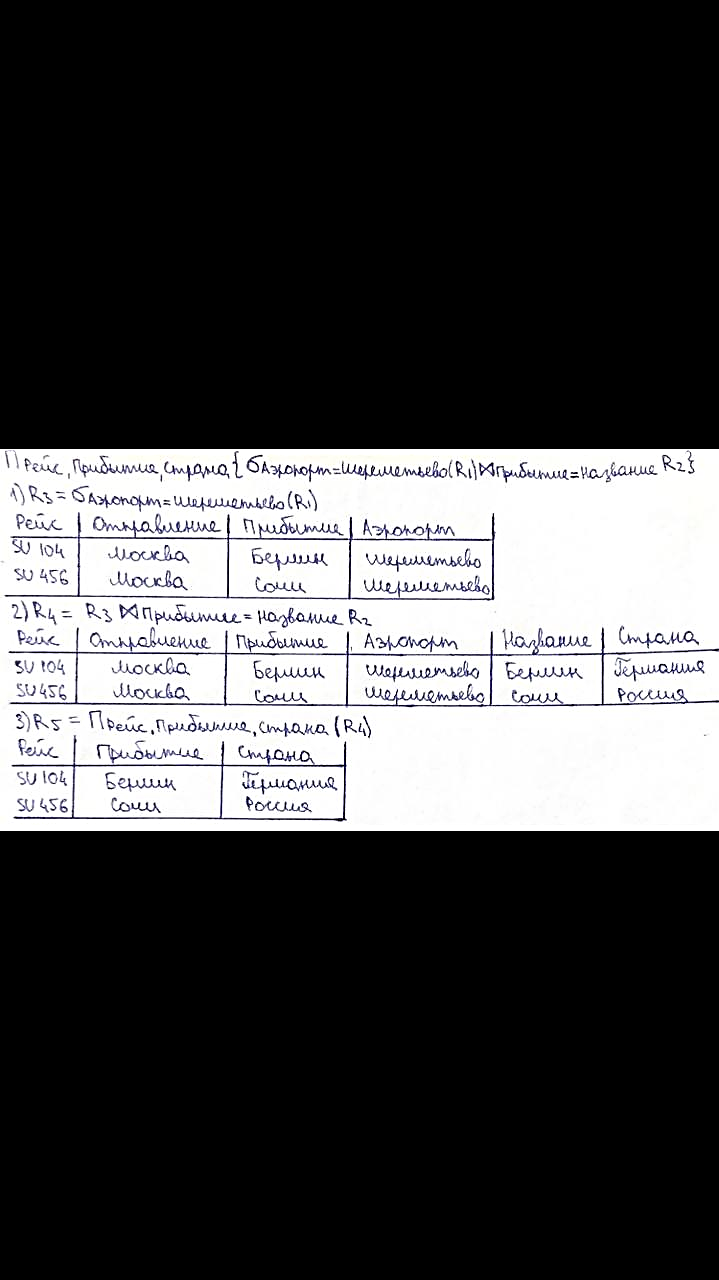 П Рейс, Прибытие, Страна {σ Аэропорт=Шереметьево(R1)⋈Прибытие=Название R2}
1) R3 = σ Аэропорт=Шереметьево(R1)
Рейс Отправление Прибытие Аэропорт
SU 104 Москва Берлин Шереметьево
SU 456 Москва Сочи Шереметьево
2) R4 = R3 ⋈ Прибытие = Название R2
Рейс Отправление Прибытие Аэропорт Название Страна
SU 104 Москва Берлин Шереметьево Берлин Германия
SU 456 Москва Сочи Шереметьево Сочи Россия
3) R5 = П Рейс, Прибытие, Страна (R4)
Рейс Прибытие Страна
SU 104 Берлин Германия
SU 456 Сочи Россия